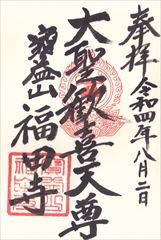 奉拝 令和四年八月二日
大聖歓喜天尊
山 福田寺